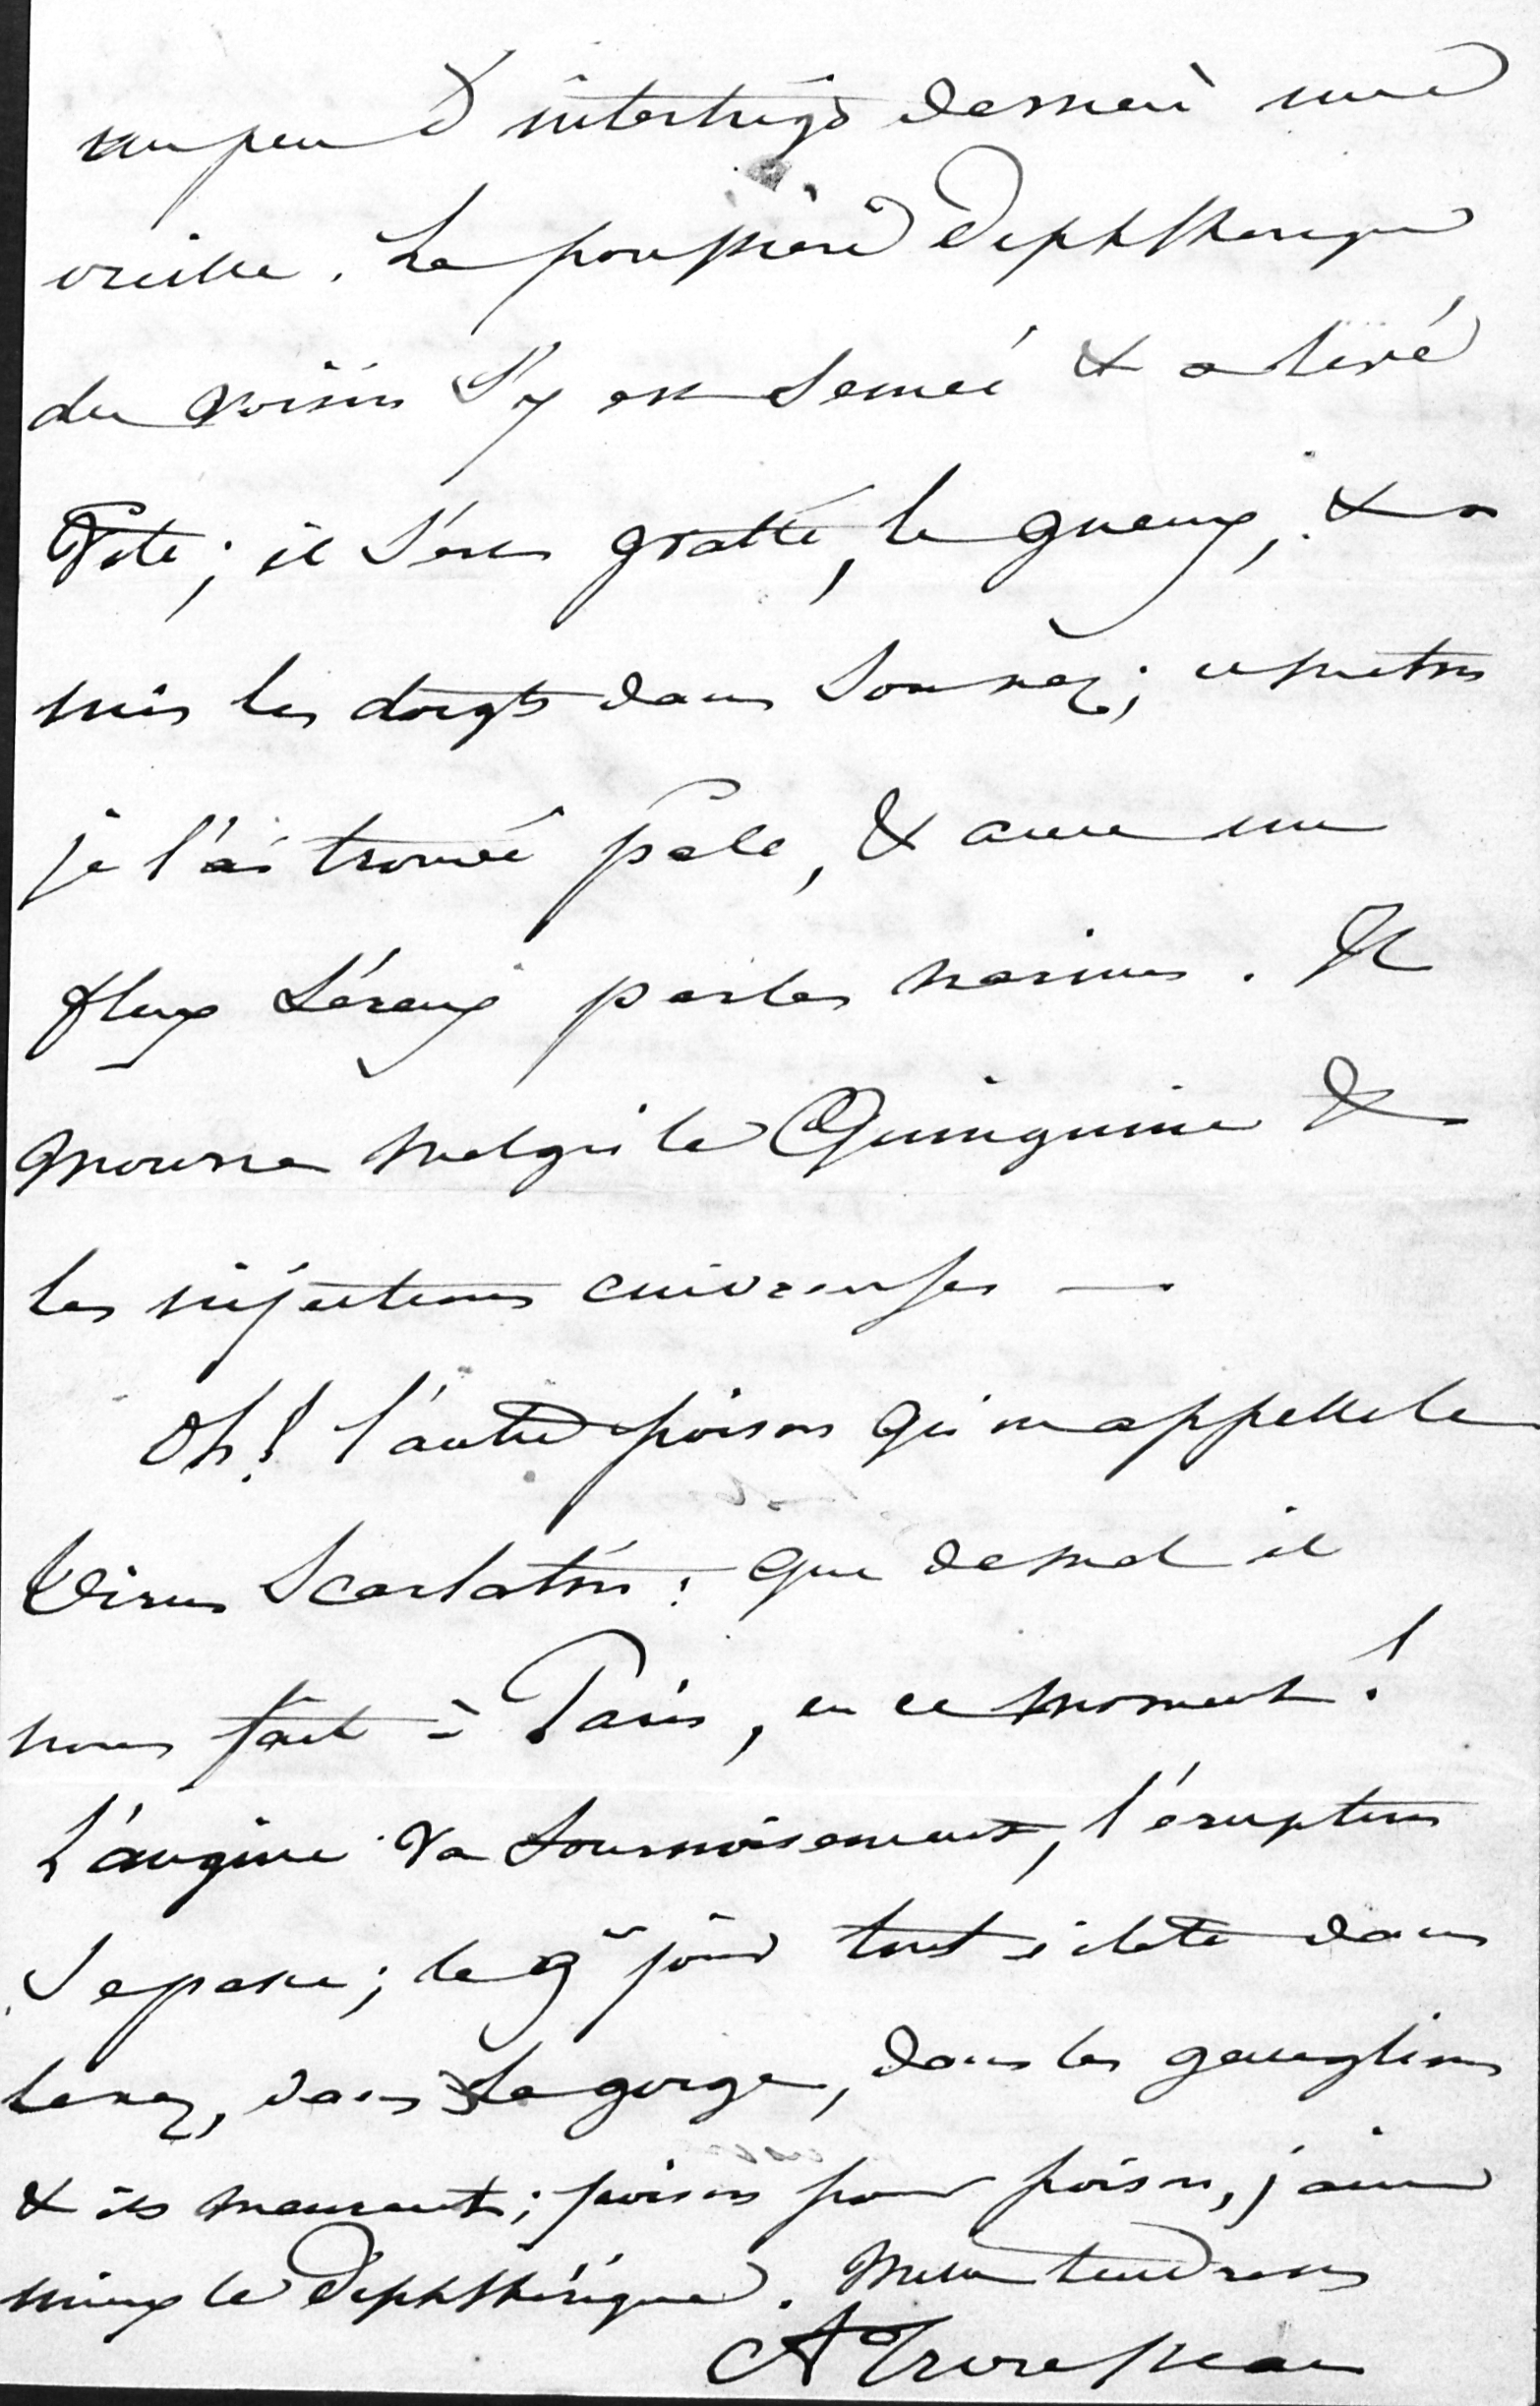 un peu d'intertrigo derrière une
oreille. La poussière diphthérique
du voisin s'y est semée & a levé
vite; il s'est gratté, le gueux, & a
mis les doigts dans son nez; ce matin
je l'ai trouvé pale, & avec un
flux séreux par les narines. Il
mourra malgré le Quinquina &
les injections cuivreuses —
Oh! l'autre poison qu'on appelle le
Virus Scarlatin: que de mal il
nous fait à Paris, en ce moment!
L'angine va sournoisement, l'éruption
se passe; le 9e jour tout éclate dans
le nez, dans la gorge, dans les ganglions
& ils meurent; poison pour poison, j'aime
mieux le diphthérique. Mille tendresses
A Trousseau